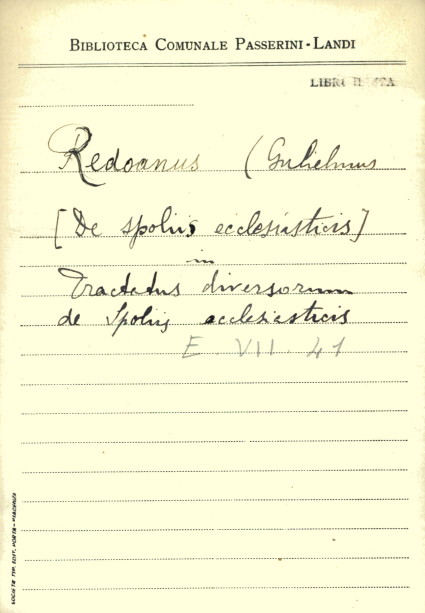 BIBLIOTECA COMUNALE PASSERINI-LANDI
LIBRI
Redoanus (Gulielmus
[De spoliis ecclesiasticis]
in
Tractatus diversorum
de Spoliis ecclesiasticis
E. VII. 41